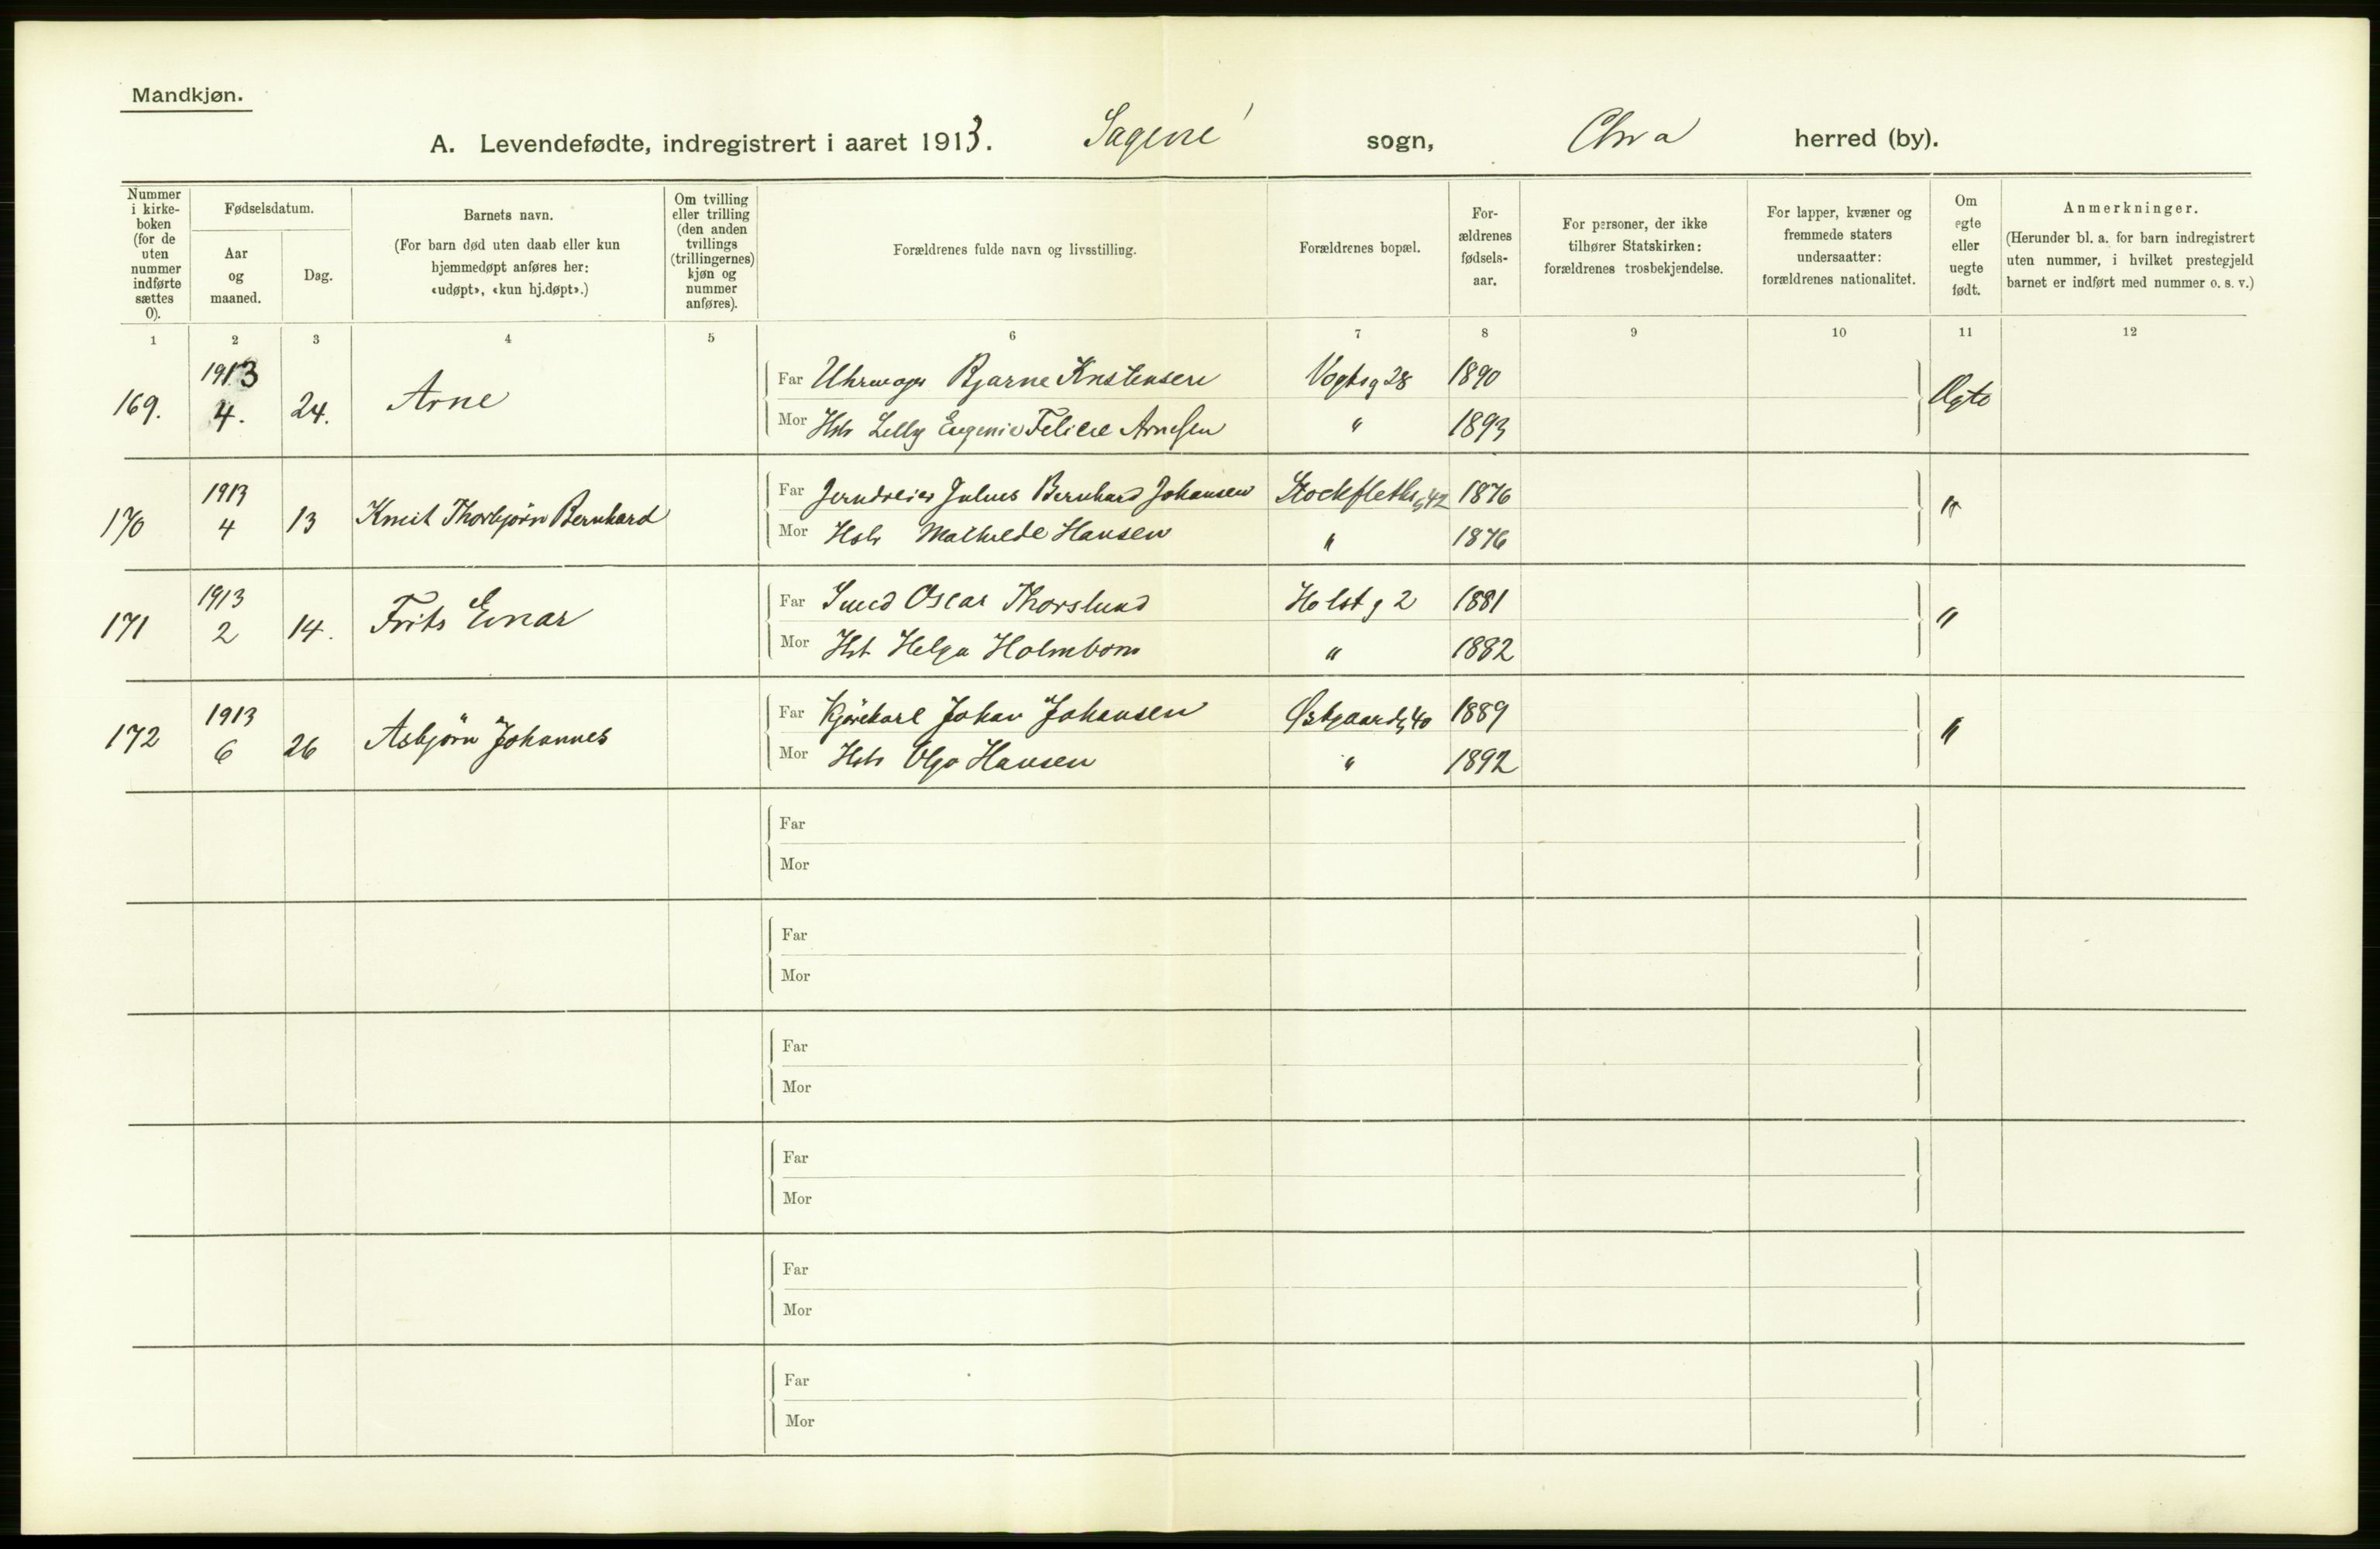 Mandkjøn.
A. Levendefødte, indregistrert i aaret 1913. Sagene sogn, Chra herred (by).
Nummer i kirke-boken (for de uten nummer indførte sættes 0).
Fødselsdatum.
Aar og maaned.
Dag.
Barnets navn.
(For barn død uten daab eller kun hjemmedøpt anføres her: «udøpt», «kun hj.døpt».)
Om tvilling eller trilling (den anden tvillings (trillingernes) kjøn og nummer anføres).
Forældrenes fulde navn og livsstilling.
Forældrenes bopæl.
For-ældrenes fødsels-aar.
For personer, der ikke tilhører Statskirken: forældrenes trosbekjendelse.
For lapper, kvæner og fremmede staters undersaatter: forældrenes nationalitet.
Om egte eller uegte født.
Anmerkninger.
(Herunder bl. a. for barn indregistrert uten nummer, i hvilket prestegjeld barnet er indført med nummer o. s. v.)
1 2 3 4 5 6 7 8 9 10 11 12
169. 1913 4. 24. Arne
Far Uhrmager Bjarne Kristensen Vogtsg 28 1890
Mor Hstr Lelly Eugenie Felicie Arnesen " 1893
Ægte
170 1913 4 13 Knut Thorbjørn Bernhard
Far Jerndreier Julius Bernhard Johansen Stockflethsg 42 1876
Mor Hstr Mathilde Hansen " 1876
"
171 1913 2 14. Frits Einar
Far Smed Oscar Thorslund Holstg 2 1881
Mor Hst Helga Holmbom " 1882
"
172 1913 6 26 Asbjörn Johannes
Far Kjørekarl Johan Johansen Østgaardsg 40 1889
Mor Hstr Olga Hansen " 1892
"
Far
Mor
Far
Mor
Far
Mor
Far
Mor
Far
Mor
Far
Mor